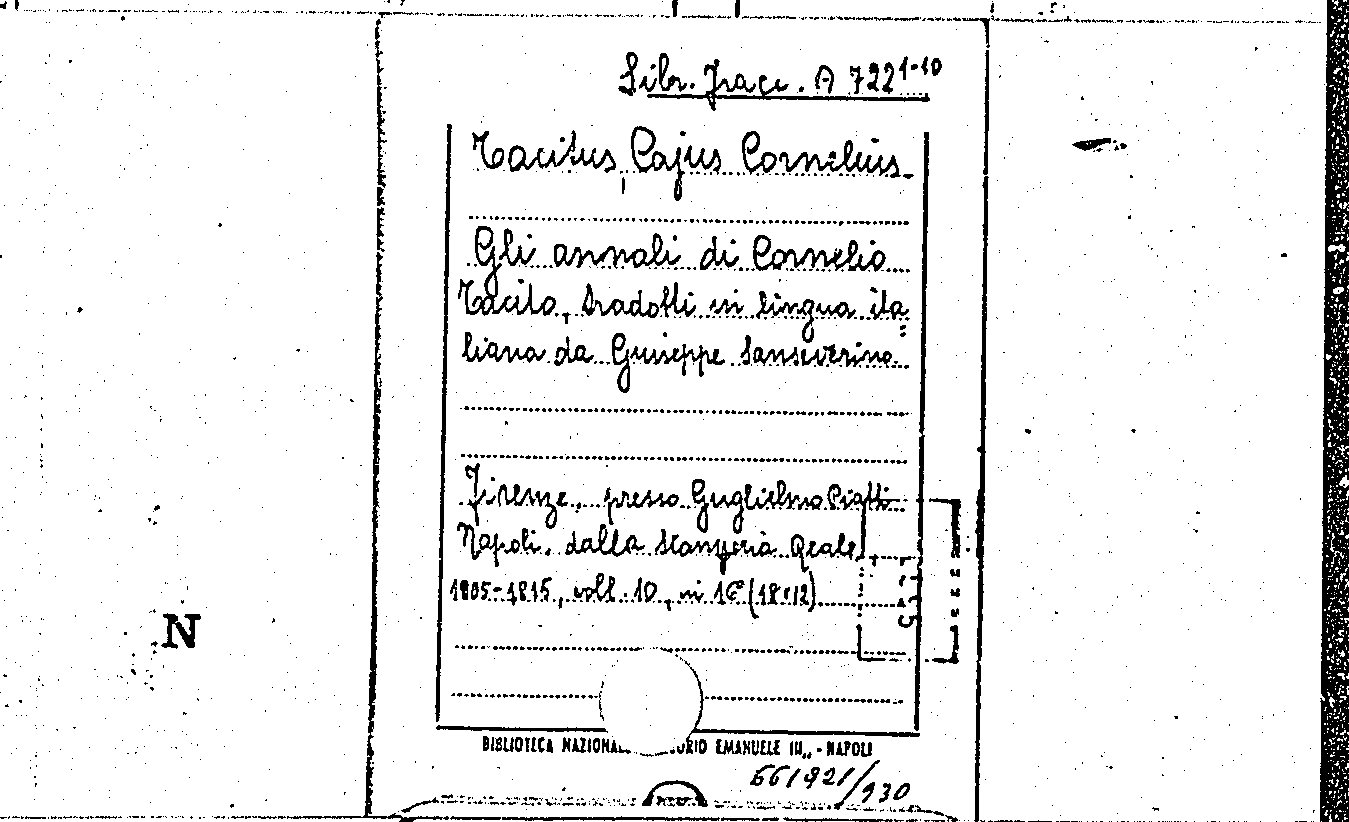 Libr. Fracc. A 722 1-10
Tacitus, Cajus Cornelius
Gli annali di Cornelio
Tacito, tradotti in lingua ita=
liana da Giuseppe Sanseverino
Firenze, presso Guglielmo Piatti
Napoli, dalla Stamperia Reale
1805-1815, voll. 10, in 16° (18x12)
N
BIBLIOTECA NAZIONA ORIO EMANUELE III„ - NAPOLI
661921/930